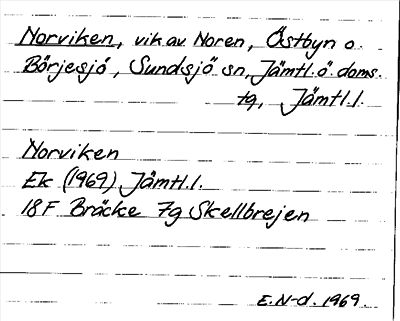 Norviken, vik av Noren, Östbyn o.
Börjesjö, Sundsjö sn, Jämtl.ö. doms.
tg, Jämtl.l.
Norviken
Ek (1969) Jämtl.l.
18F Bräcke 7g Skellbrejen
E.N-d. 1969.